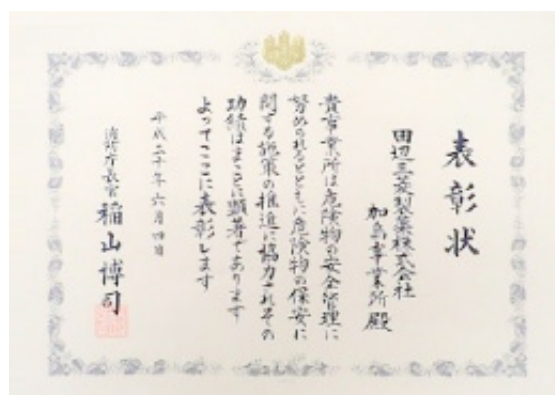 表彰状
田辺三菱製薬株式会社
加島事業所 殿
貴事業所は危険物の安全管理に
努められるとともに危険物の保安に
関する施策の推進に協力されその
功績はまことに顕著であります
よってここに表彰します
平成二十年六月四日
消防庁長官 稲山博司